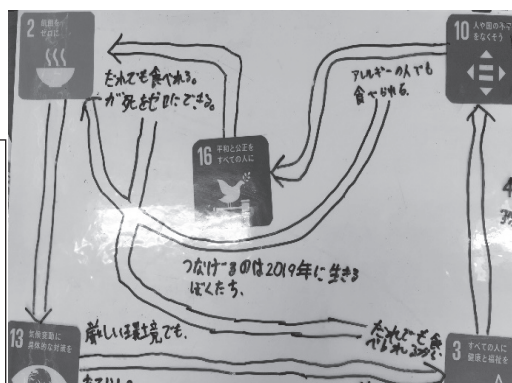 2 飢餓を
ゼロに
10 人や国の不平
をなくそう
だれでも食べれる。
が死をゼロにできる。
アレルギーの人でも
食べられる
16 平和と公正を
すべての人に
つなげるのは2019年に生きる
ぼくたち、
13 気候変動に
具体的な対策を
厳しい環境でも、
だれでも食
べれるから、
3 すべての人に
健康と福祉を